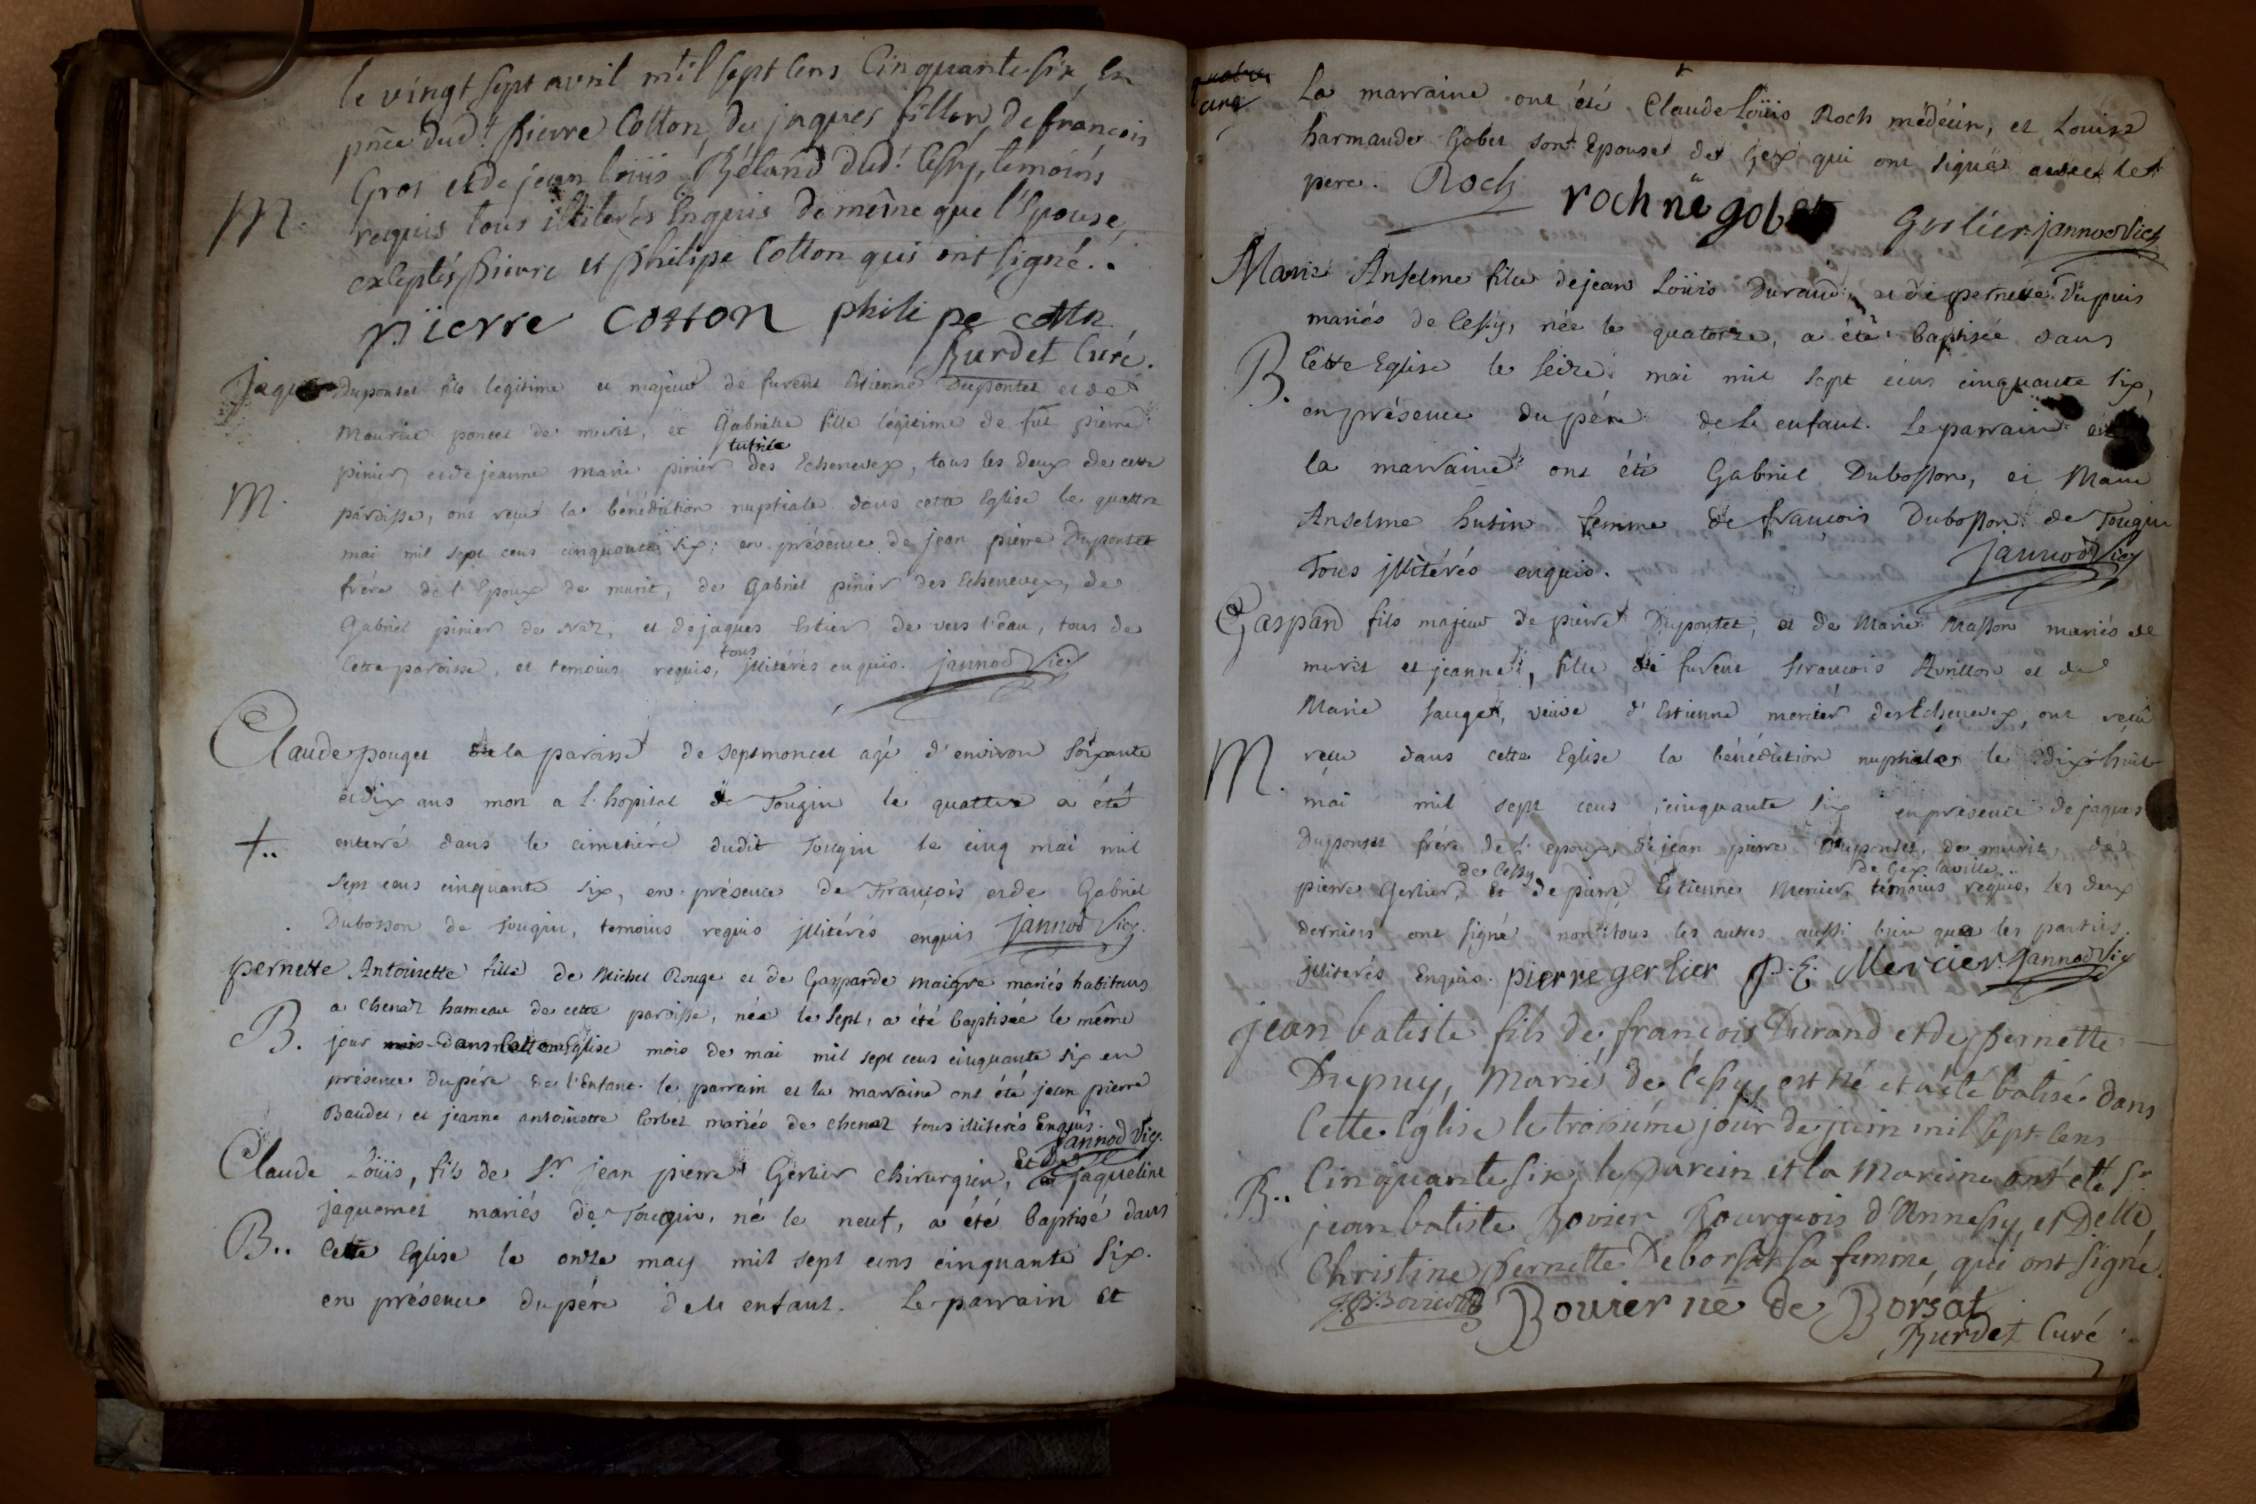 le vingt sept avril mil sept cens Cinquante six, En
pñce dud.t pierre Cotton, de jaques fillon, de françois
Gros et de jean loüis Béland dud.t Cessy, temoins
M. requis tous illiterés Enquis de même que l'Epouse,
exceptés pierre et philipe Cotton qui ont signé..
pierre cotton philipe cotton
Burdet Curé.
Jaques Dupontet fils legitime et majeur de furent Etienne Dupontet et de
Maurise poncet de murit, et Gabrielle fille légitime de fut pierre
tutrice
pinier et de jeanne marie pinier des Echenevex, tous les deux de cette
M. paroisse, ont reçu la bénédiction nuptiale dans cette Eglise le quattre
mai mil sept cens cinquante six: en présence de jean pierre Dupontet
frére de l'Epoux de murit, de Gabriel pinier des Echenevex, de
Gabriel pinier de Naz, et de jaques Estier de vers l'Eau, tous de
tous
Cette paroisse, et temoins requis, illitérés enquis. jannod Vic.
Claude pouget de la paroisse de septmoncel agé d'environ soixante
et dix ans mort a l'hopital de Tougin le quattre a été
+.. enterré dans le cimetiére dudit Tougin le cinq mai mil
sept cens cinquante six, en présence de François et de Gabriel
Dubosson de Tougin, temoins requis illitérés enquis jannod Vic.
pernette Antoinette fille de Michel Rouge et de Gasparde maigre mariés habitans
a Chenaz hameau de cette paroisse, née le sept, a été baptisée le même
B. jour dans cette Eglise mois de mai mil sept cens cinquante six en
présence du pére de l'Enfant. le parrain et la marraine ont été jean pierre
Baudet, et jeanne antoinette Corbet mariés de chenaz tous illiterés Enquis.
jannod Vic.
et de
Claude Loüis, fils de S.r jean pierre Gerlier chirurgien, jaqueline
jaquemet mariés de Tougin, né le neuf, a été baptisé dans
B.. Cette Eglise le onze may mil sept cens cinquante six.
en présence du pére de le enfant. Le parrain et
quatre
cinq
La marraine ont été Claude Loüis Roch médécin, et Louise
harmande Gobet son Epouse de Gex qui ont signé avec le
pere. Roch roch né gobet Gerlier jannod Vic
Marie Anselme fille de jean Loüis Durand, et de pernette Dupuis
mariés de Cessy, née le quatorze, a été baptisée dans
B. Cette Eglise le seize mai mil sept cens cinquante six,
en présence du pére de le enfant. Le parrain et
la marraine ont été Gabriel Dubosson, et Marie
Anselme hutin femme de françois Dubosson de Tougin
Tous illitérés enquis. jannod Vic
Gaspard fils majeur de pierre Dupontet, et de Marie Masson mariés de
murit et jeanne, fille de furent françois Avrillon et de
Marie sauget, veuve d'Estienne mercier des Echenevex, ont reçu
M. reçu dans cette Eglise la bénédiction nuptiale le dix huit
mai mil sept cens cinquante six en présence de jaques
Dupontet frére de l'epoux, de jean pierre Dupontet, de murit, de
de Cessy de Gex la ville
pierre Gerlier, et de pierre Etienne Mercier, témoins requis, les deux
derniers ont signé non tous les autres aussi bien que les parties
illiterés Enquis. pierre gerlier P. E. Mercier jannod Vic
jean batiste fils de françois Durand et de pernette
Dupuy, Mariés de Cessy, est né et a été batisé dans
Cette Eglise le troisiéme jour de juin mil sept cens
B.. Cinquante six, le parein et la Mareine ont été S.r
jean batiste Bovier Bourgeois d'Annessy, et Delle
Christine pernette Deborsat sa femme, qui ont signé.
J.B. Bovier Bouier né de Borsat
Burdet Curé